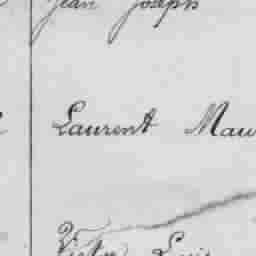 Jean Joseph
Laurent Mau
Victor Louis